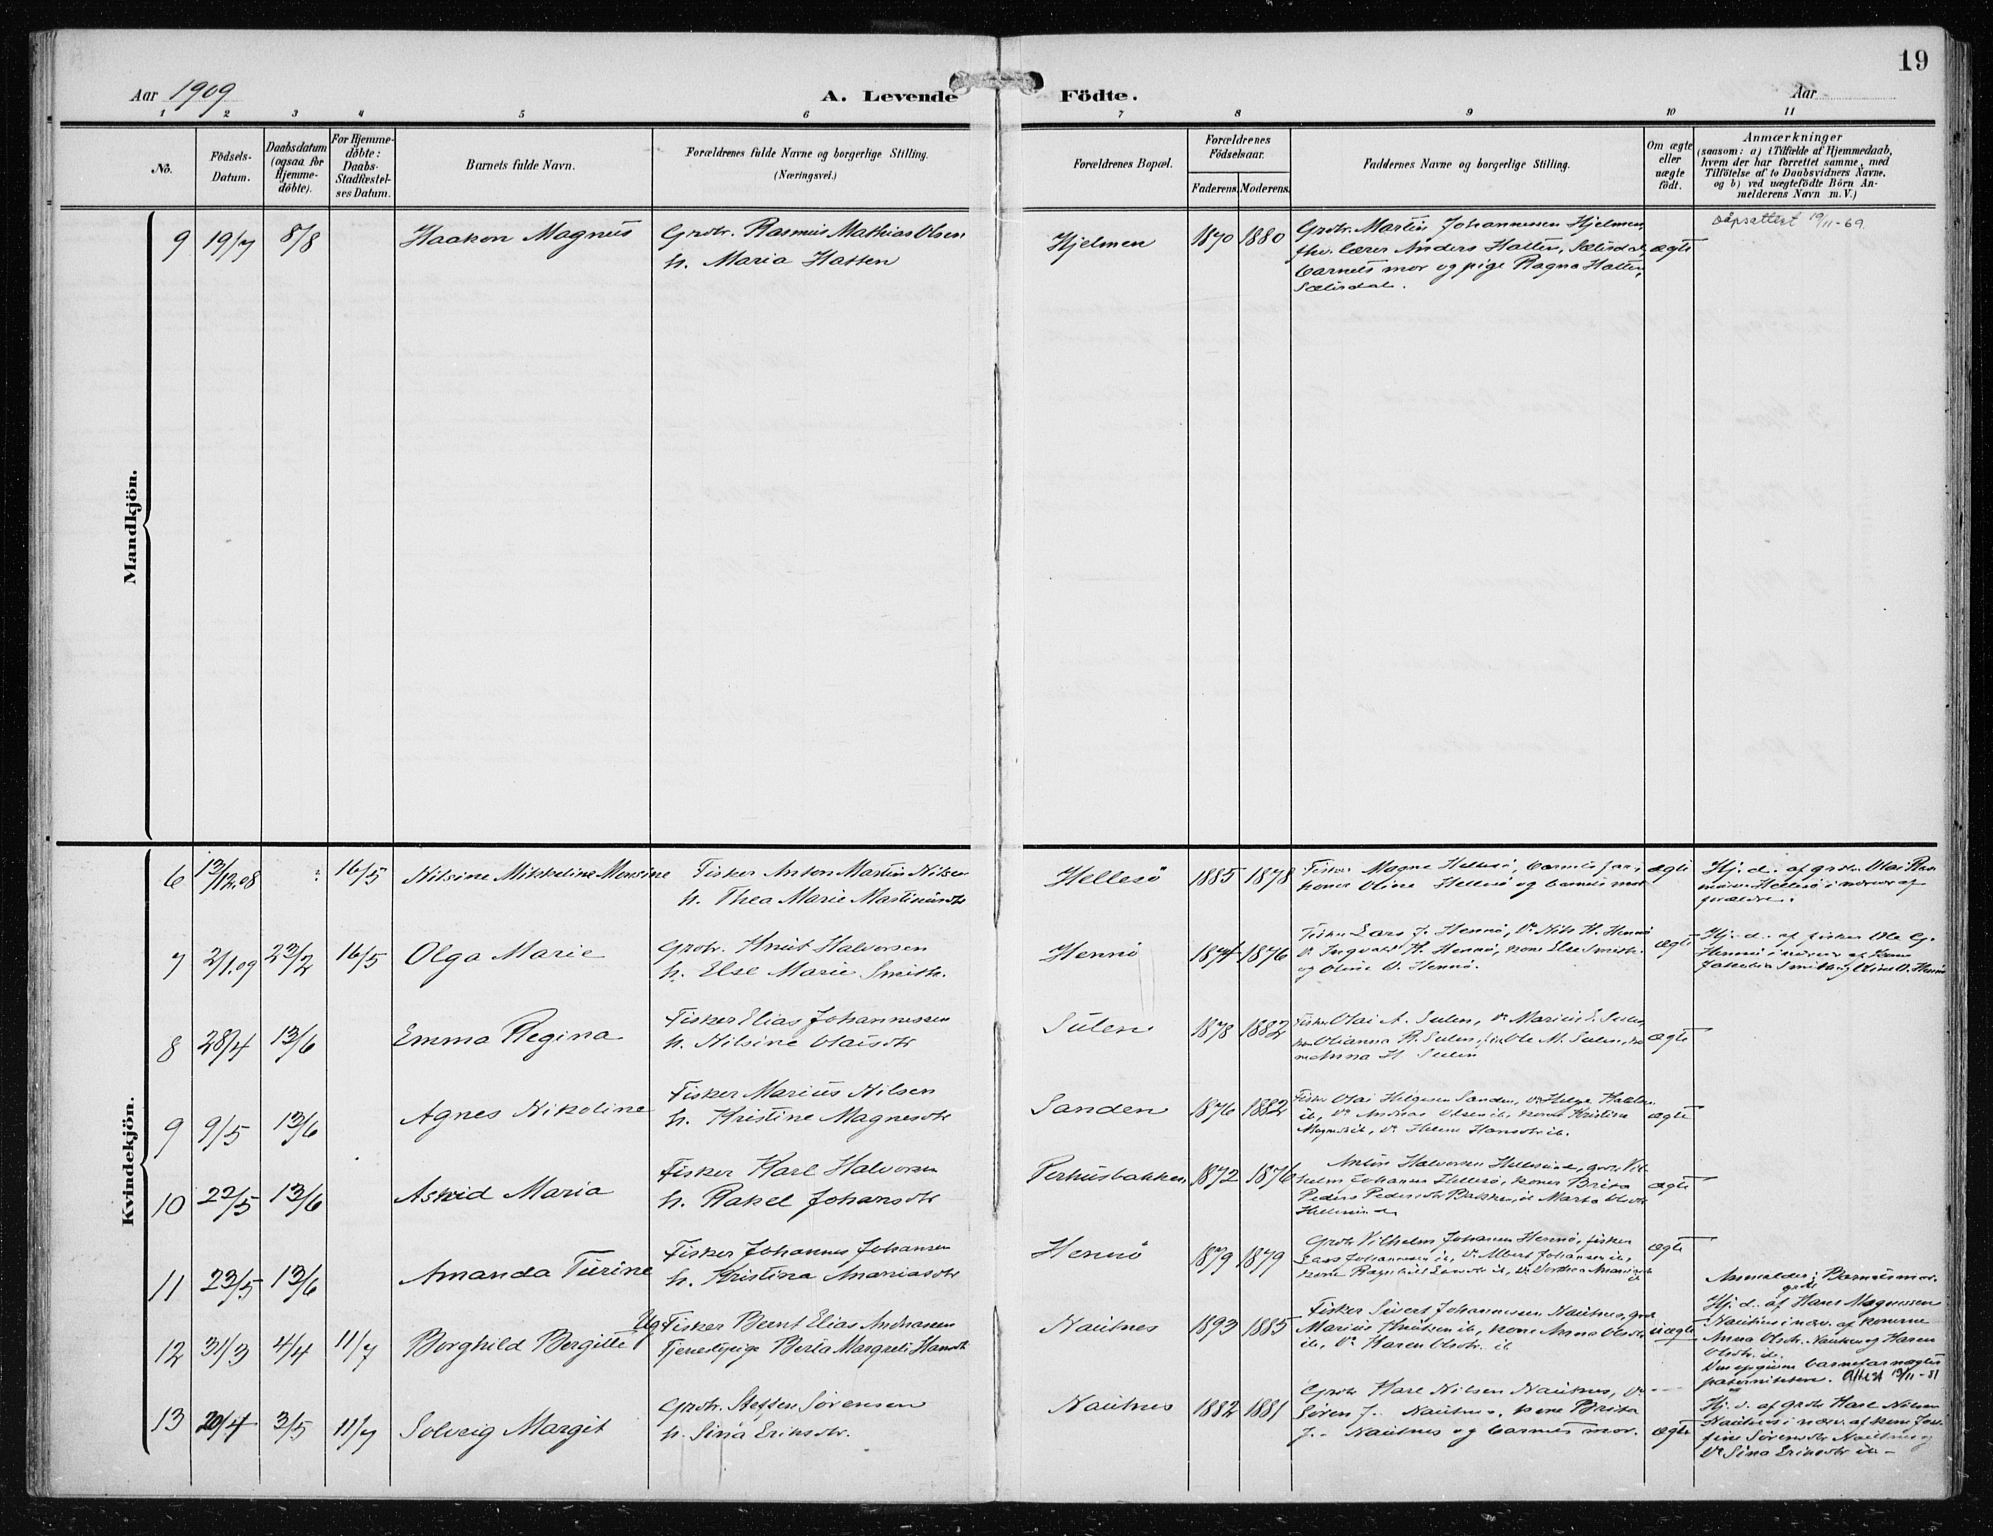 19
Aar 1909
A. Levende Födte.
Aar
1 2 3 4 5 6 7 8 9 10 11
No.
Födsels-
Datum.
Daabsdatum
(ogsaa for
Hjemme-
döbte).
For Hjemme-
döbte:
Daabs-
Stadfæstel-
ses Datum.
Barnets fulde Navn.
Forældrenes fulde Navne og borgerlige Stilling.
(Næringsvei.)
Forældrenes Bopæl.
Forældrenes
Födselsaar.
Faderens. Moderens.
Faddernes Navne og borgerlige Stilling.
Om ægte
eller
uægte
födt.
Anmærkninger
(saasom: a) i Tilfælde af Hjemmedaab,
hvem der har forrettet samme, med
Tilföielse af to Daabsvidners Navne,
og b) ved uægtefödte Börn An-
melderens Navn m. V.)
Mandkjön.
9 19/7 8/8 Haakon Magnus
Grdbr. Rasmus Mathias Olsen
h. Maria Hatten
Hjelmen 1870 1880
Grdbr. Martin Johannessen Hjelmen,
fhv. lærer Anders Hatten,
barnets mor og pige Ragna Hatten,
ægte
Dåpsattest 19/11-69
Kvindekjön.
6 13/12.08 16/5 Nilsine Mikkeline Monsine
Fisker Anton Martin Nilsen
h. Thea Marie
Hellesö 1885 1878
Fisker Magne Hellesö, barnets far,
koner Oline Hellesö og barnets mor
ægte
Hj. d. af grdbr. Olai
Hellesö i nærvær af
forældre.
7 2/1.09 23/2 16/5 Olga Marie
Grdbr. Knut Halvorsen
h. Else Marie Smith.
Hennö 1874 1876
Fisker Lars J. Hennö,
H. Hennö, kone Else Smith
og Oline O. Hennö.
ægte
Hj. d. af fisker Ole G.
Hennö i nærvær af
8 28/4 13/6 Emma Regina
Fisker Elias Johannessen
h. Nilsine Olaisdtr
Sulen 1878 1882
Fisker Olai A. Sulen, Do Marius E. Sulen,
Olianna R. Sulen, Ole M. Sulen,
Anna H Sulen
ægte
9 9/5 13/6 Agnes Nikoline
Fisker Marius Nilsen
h. Kristine Magnesdtr
Sanden 1876 1882
Fisker Olai Helgesen Sanden,
ib, Do Andreas Olsen ib, kone Kristina
Do Helene Hansdtr ib.
ægte
10 22/5 13/6 Astrid Maria
Fisker Karl Halvorsen
h. Rakel Johansdtr
1872 1876
Anton Halvorsen
helm Johansen Hellesö, koner Brita
Marta Olsdtr
ægte
11 23/5 13/6 Amanda Turine
Fisker Johannes Johansen
h. Kristina Ananiasdtr
Hennö 1879 1879
Grdbr Vilhelm Johansen Hennö, fisker
Lars Johannesen ib, Do Albert Johansen ib,
kone Ragnhild
ægte
12 31/3 4/4 11/7 Borghild Bergitte
Ug. Fisker Bernt Elias Andreassen
Tjenestepige Berta Margrete Hansdtr
Nautnes 1893 1885
Fisker Sivert Johannessen Nautnes,
Marius Knutsen ib, kone Anna Olsdtr
ib, Do Karen Olsdtr ib
uægte
Anmelder: Barnets mor.
Hj. d. af grdbr Hans Magnussen
Nautnes i nærv. af konerne
Anna Olsdtr. Nautnes og Karen
Olsdtr. ib.
Den opgivne barnefar nægter
paterniteten.
13 20/4 3/5 11/7 Solveig Margit
Grdbr. Steffen Sørensen
h. Sina Eriksdtr.
Nautnes 1882 1881
Grdbr Karl Nilsen Nautnes, Do
Søren J. Nautnes, kone Brita
J. Nautnes og barnets mor.
ægte
Hj. d. af grdbr Karl Nilsen
Nautnes i nærv. af kone
Sørensdtr Nautnes og
Do Sina Eriksdtr ib